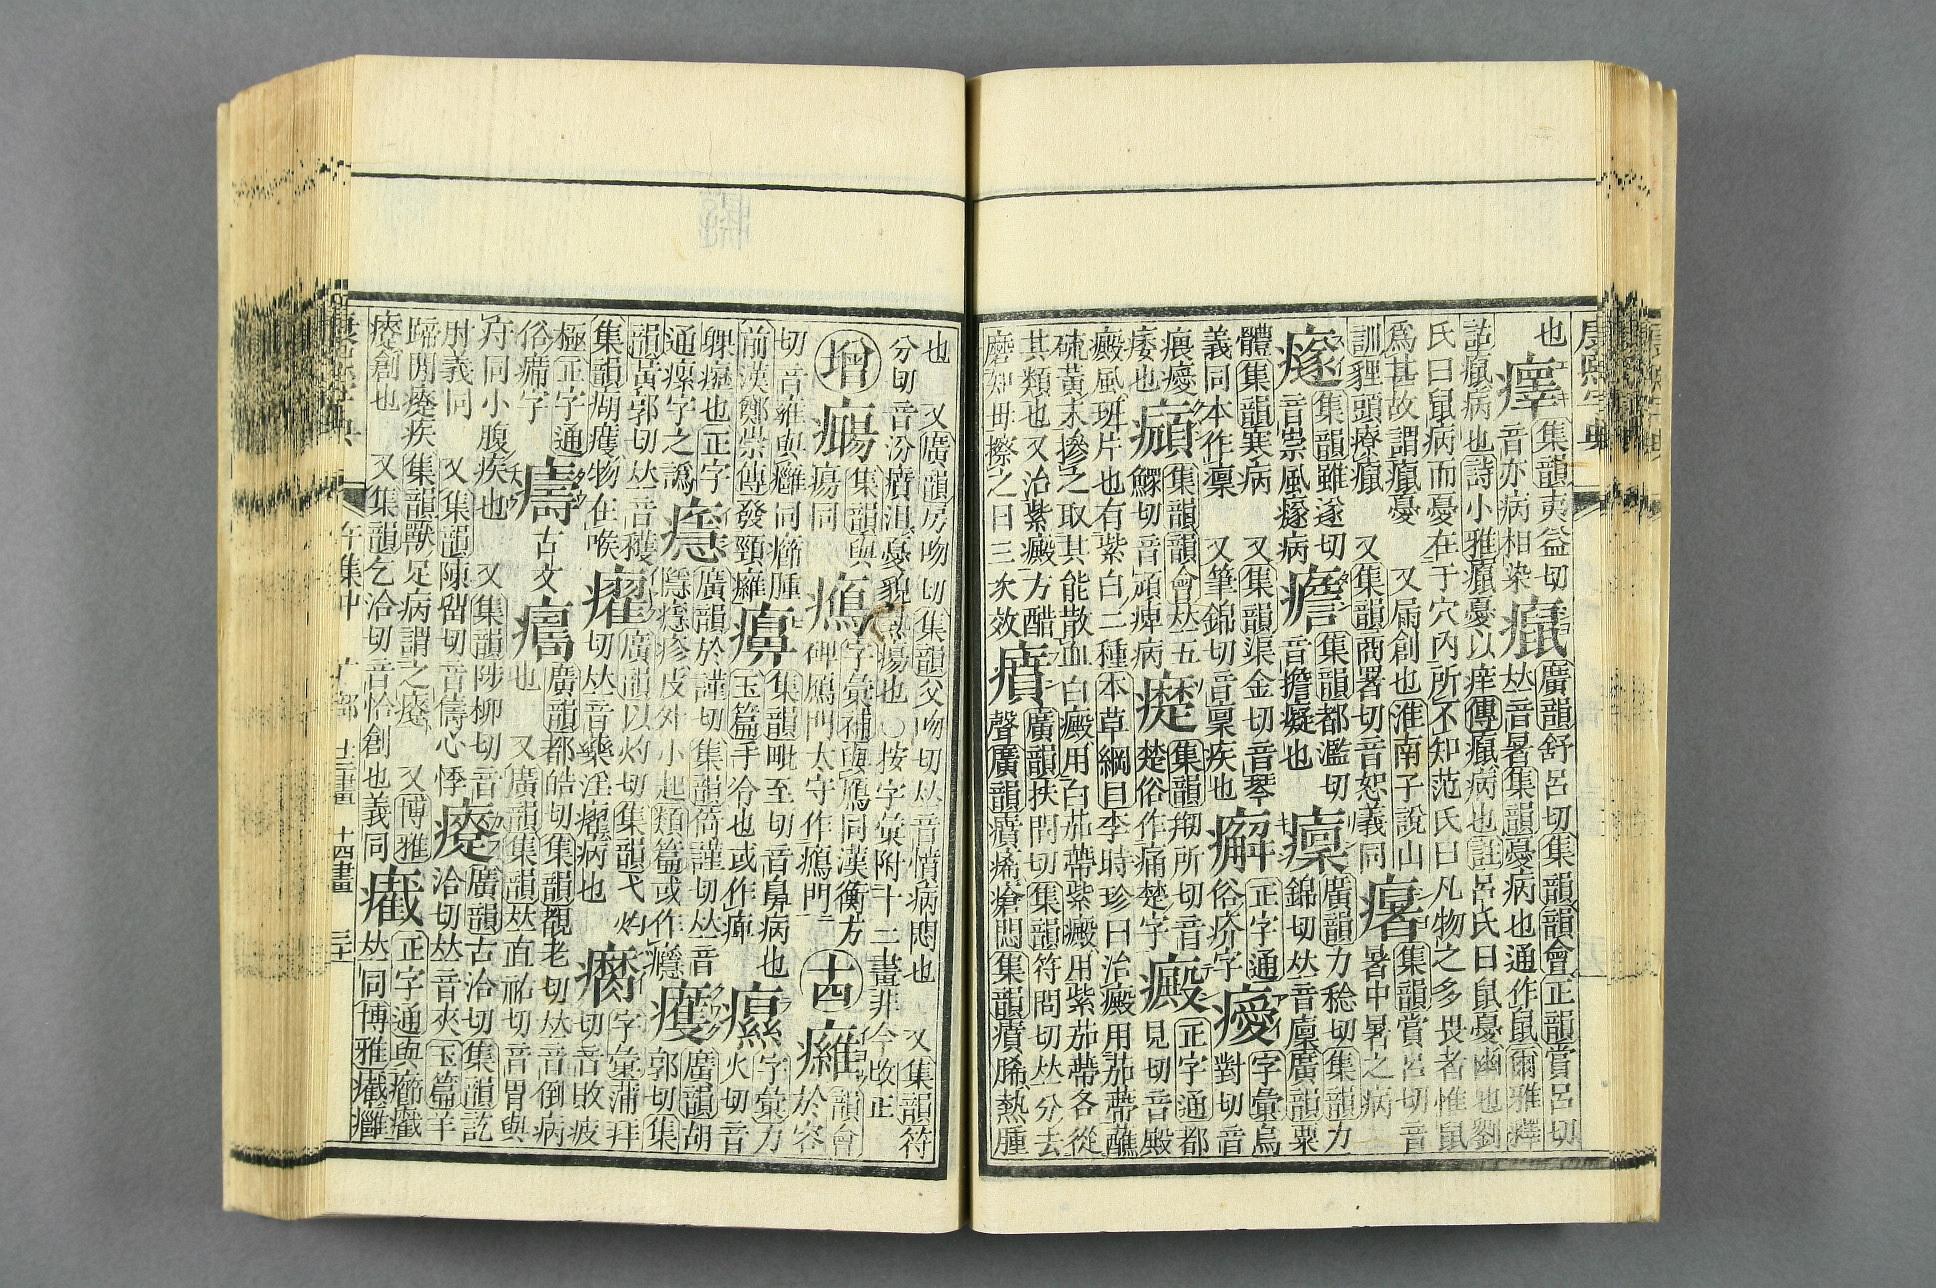 康熙字典
也
集韻夷益切
音亦病相染
癙
廣韻舒呂切集韻韻會正韻賞呂切
𠀤音暑集韻憂病也通作鼠爾雅釋
詁癙病也詩小雅癙憂以痒傳癙病也註呂氏曰鼠憂幽也劉
氏曰鼠病而憂在于穴內所不知范氏曰凡物之多畏者惟鼠
爲甚故謂癙憂 又屚創也淮南子說山
訓貍頭療癙 又集韻商署切音恕義同
集韻賞呂切音
暑中暑之病
集韻雖遂切
音崇風病
集韻都濫切
音擔癡也
癛
廣韻力稔切集韻力
錦切𠀤音廩廣韻粟
體集韻寒病 又集韻渠金切音琴
義同本作凜 又筆錦切音稟疾也
正字通
俗疥字
字彙烏
對切音
痿也
集韻韻會𠀤五
鰥切音頑痺病
集韻䎡所切音
楚俗作痛楚字
癜
正字通都
見切音殿
癜風斑片也有紫白二種本草綱目李時珍曰治癜用茄蔕蘸
硫黃末摻之取其能散血白癜用白茄蔕紫癜用紫茄蔕各從
其類也又治紫癜方醋
磨知毋擦之日三次效
廣韻扶問切集韻符問切𠀤分去
聲廣韻瘡悶集韻熱腫
也 又廣韻房吻切集韻父吻切𠀤音憤病悶也 又集韻符
分切音汾憂貌熱瘍也○按字彙附十二畫非今改正
增
集韻與
瘍同
字彙補與鴈同漢衡方
碑鴈門太守作門
十四
韻會
於容
切音雍與癰同癤腫
前漢鄭崇傳發頸癰
集韻毗至切音鼻病也
玉篇手冷也或作
字彙力
火切音
正字
通瘰字之譌
廣韻於謹切集韻倚謹切𠀤音
隱疹皮外小起類篇或作癮
廣韻胡
郭切集
韻黃郭切𠀤音穫
集韻物在喉
廣韻以灼切集韻弋灼
切𠀤音藥淫病也
字彙蒲拜
切音敗疲
極正字通
俗字
古文
廣韻都皓切集韻覩老切𠀤音倒病
也 又廣韻集韻𠀤直祐切音冑與
疛同小腹疾也 又集韻陟柳切音
肘義同 又集韻陳留切音儔心悸
廣韻古洽切集韻訖
洽切𠀤音夾玉篇羊
蹄閒疾 集韻獸足病謂之 又博雅
創也 又集韻乞洽切音恰創也義同
正字通與癤
𠀤同博雅
康熙字典 午集中 疒部 十三畫 十四畫 三十